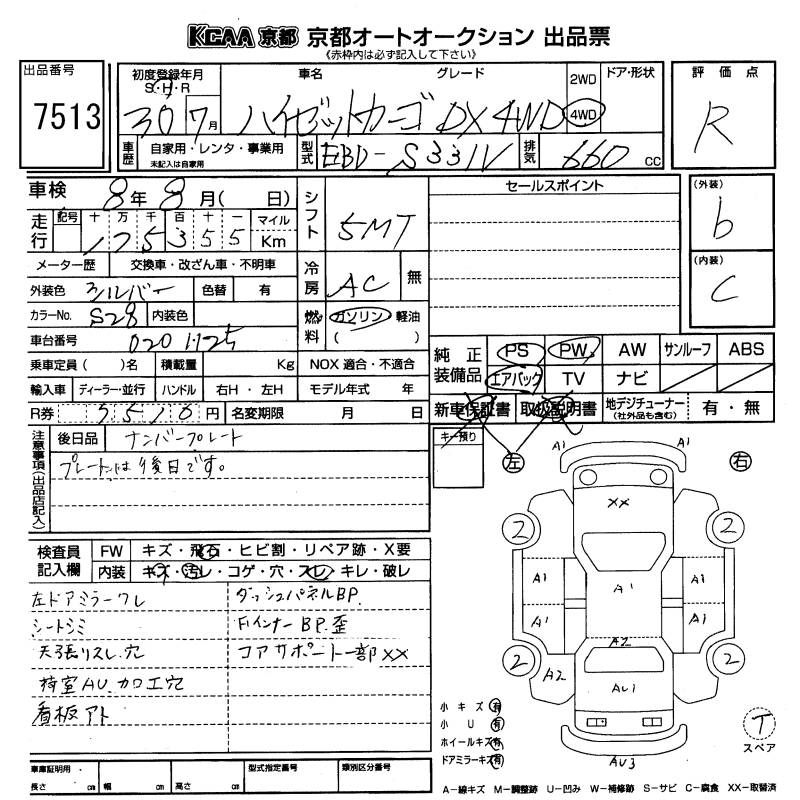 KCAA 京都 京都オートオークション 出品票
《赤枠内は必ず記入して下さい》
出品番号
7513
初度登録年月
S・H・R
30 7月
車名
グレード
ハイゼットカーゴ DX 4WD
2WD
4WD
ドア・形状
評価点
R
車歴
自家用・レンタ・事業用
未記入は自家用
型式
EBD-S331V
排気
660 CC
車検
8年 8月( 日)
走行
記号 十 万 千 百 十 一 マイル
175355 Km
メーター歴 交換車・改ざん車・不明車
外装色 シルバー 色替 有
カラーNo. S28 内装色
車台番号
0201125
シフト
5MT
冷房
AC 無
燃料
ガソリン 軽油
( )
セールスポイント
(外装)
b
(内装)
C
乗車定員( )名 積載量 Kg NOX 適合・不適合
輸入車 ディーラー・並行 ハンドル 右H・左H モデル年式 年
R券 9510円 名変期限 月 日
純正装備品
PS PW AW サンルーフ ABS
エアバック TV ナビ
新車保証書 取扱説明書 地デジチューナー(社外品も含む) 有・無
注意事項(出品店記入)
後日品 ナンバープレート
プレートは後日です。
キー預り
左
右
検査員記入欄
FW キズ・飛石・ヒビ割・リペア跡・X要
内装 キズ・汚レ・コゲ・穴・スレ・キレ・破レ
左ドアミラーワレ
シートシミ
天張リスレ.穴
荷室AU.カロエ穴
看板アト
ダッシュパネルBP.
FインナーBP.歪
コアサポート一部XX
A1 A1
XX
2 2
A1 A1 A1
A1 A1
A2
2 2
A2 AU1
AU3
小キズ 有
小U 有
ホイールキズ 有
ドアミラーキズ 有
T
スペア
車庫証明用
長さ cm 幅 cm 高さ cm
型式指定番号
類別区分番号
A-線キズ M-調整跡 U-凹み W-補修跡 S-サビ C-腐食 XX-取替済